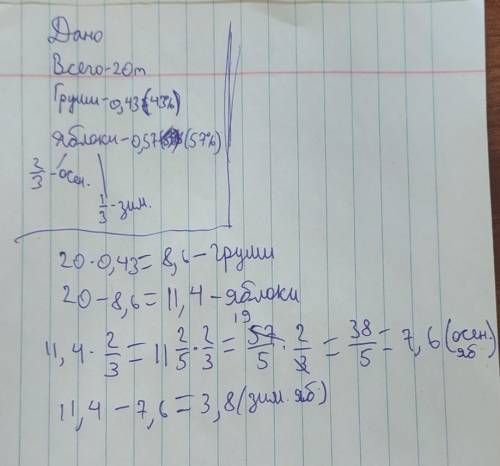 Дано
Всего-20т
Груши-0,43(43%)
Яблоки-0,57(57%)
2/3-осен.
1/3-зим.
20·0,43=8,6-груши
20-8,6=11,4-яблоки
11,4·2/3=11 2/5·2/3= 19 57/5·2/3=38/5=7,6(осен. яб.)
11,4-7,6=3,8(зим. яб.)